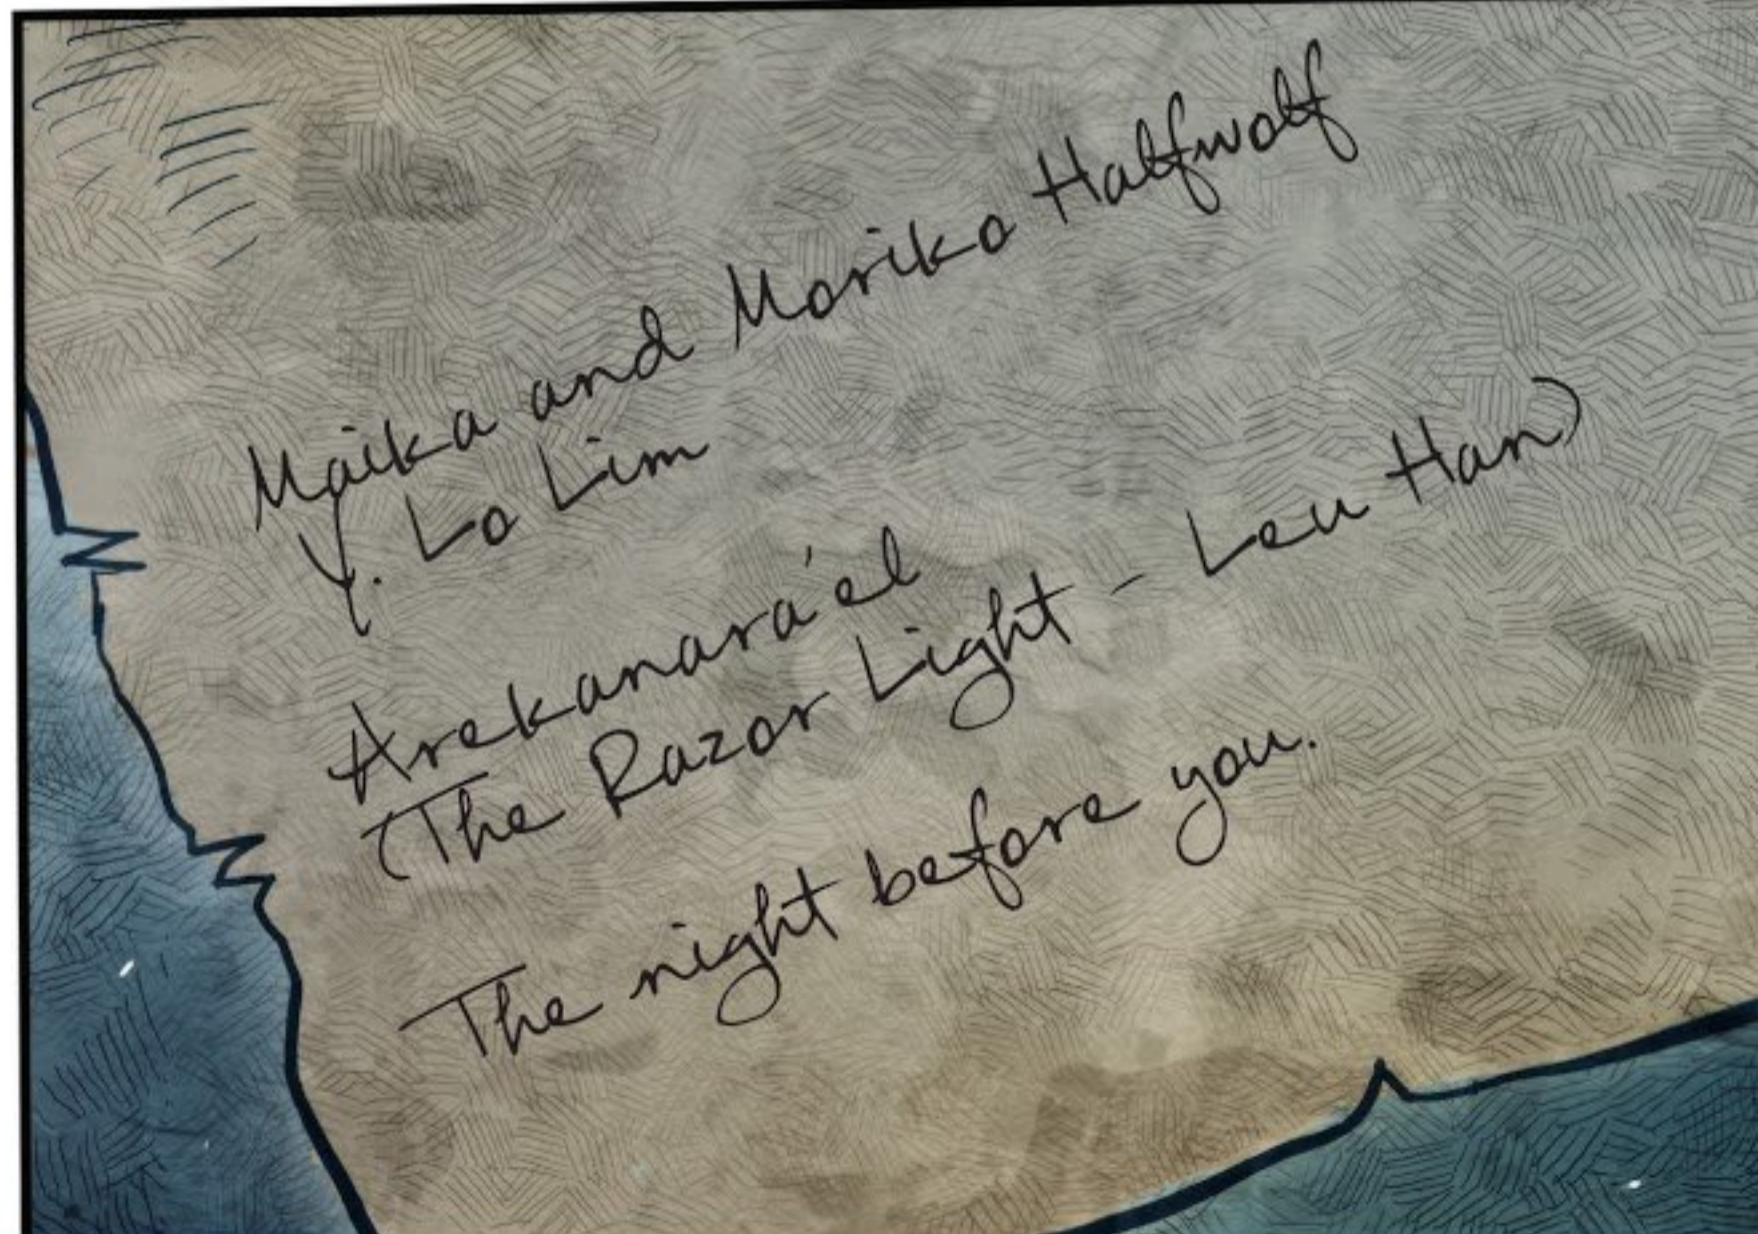 Maika and Moriko Halfwolf
Y. La Lim
Arekanara'el
(The Razor Light - Leu Han)
The night before you.